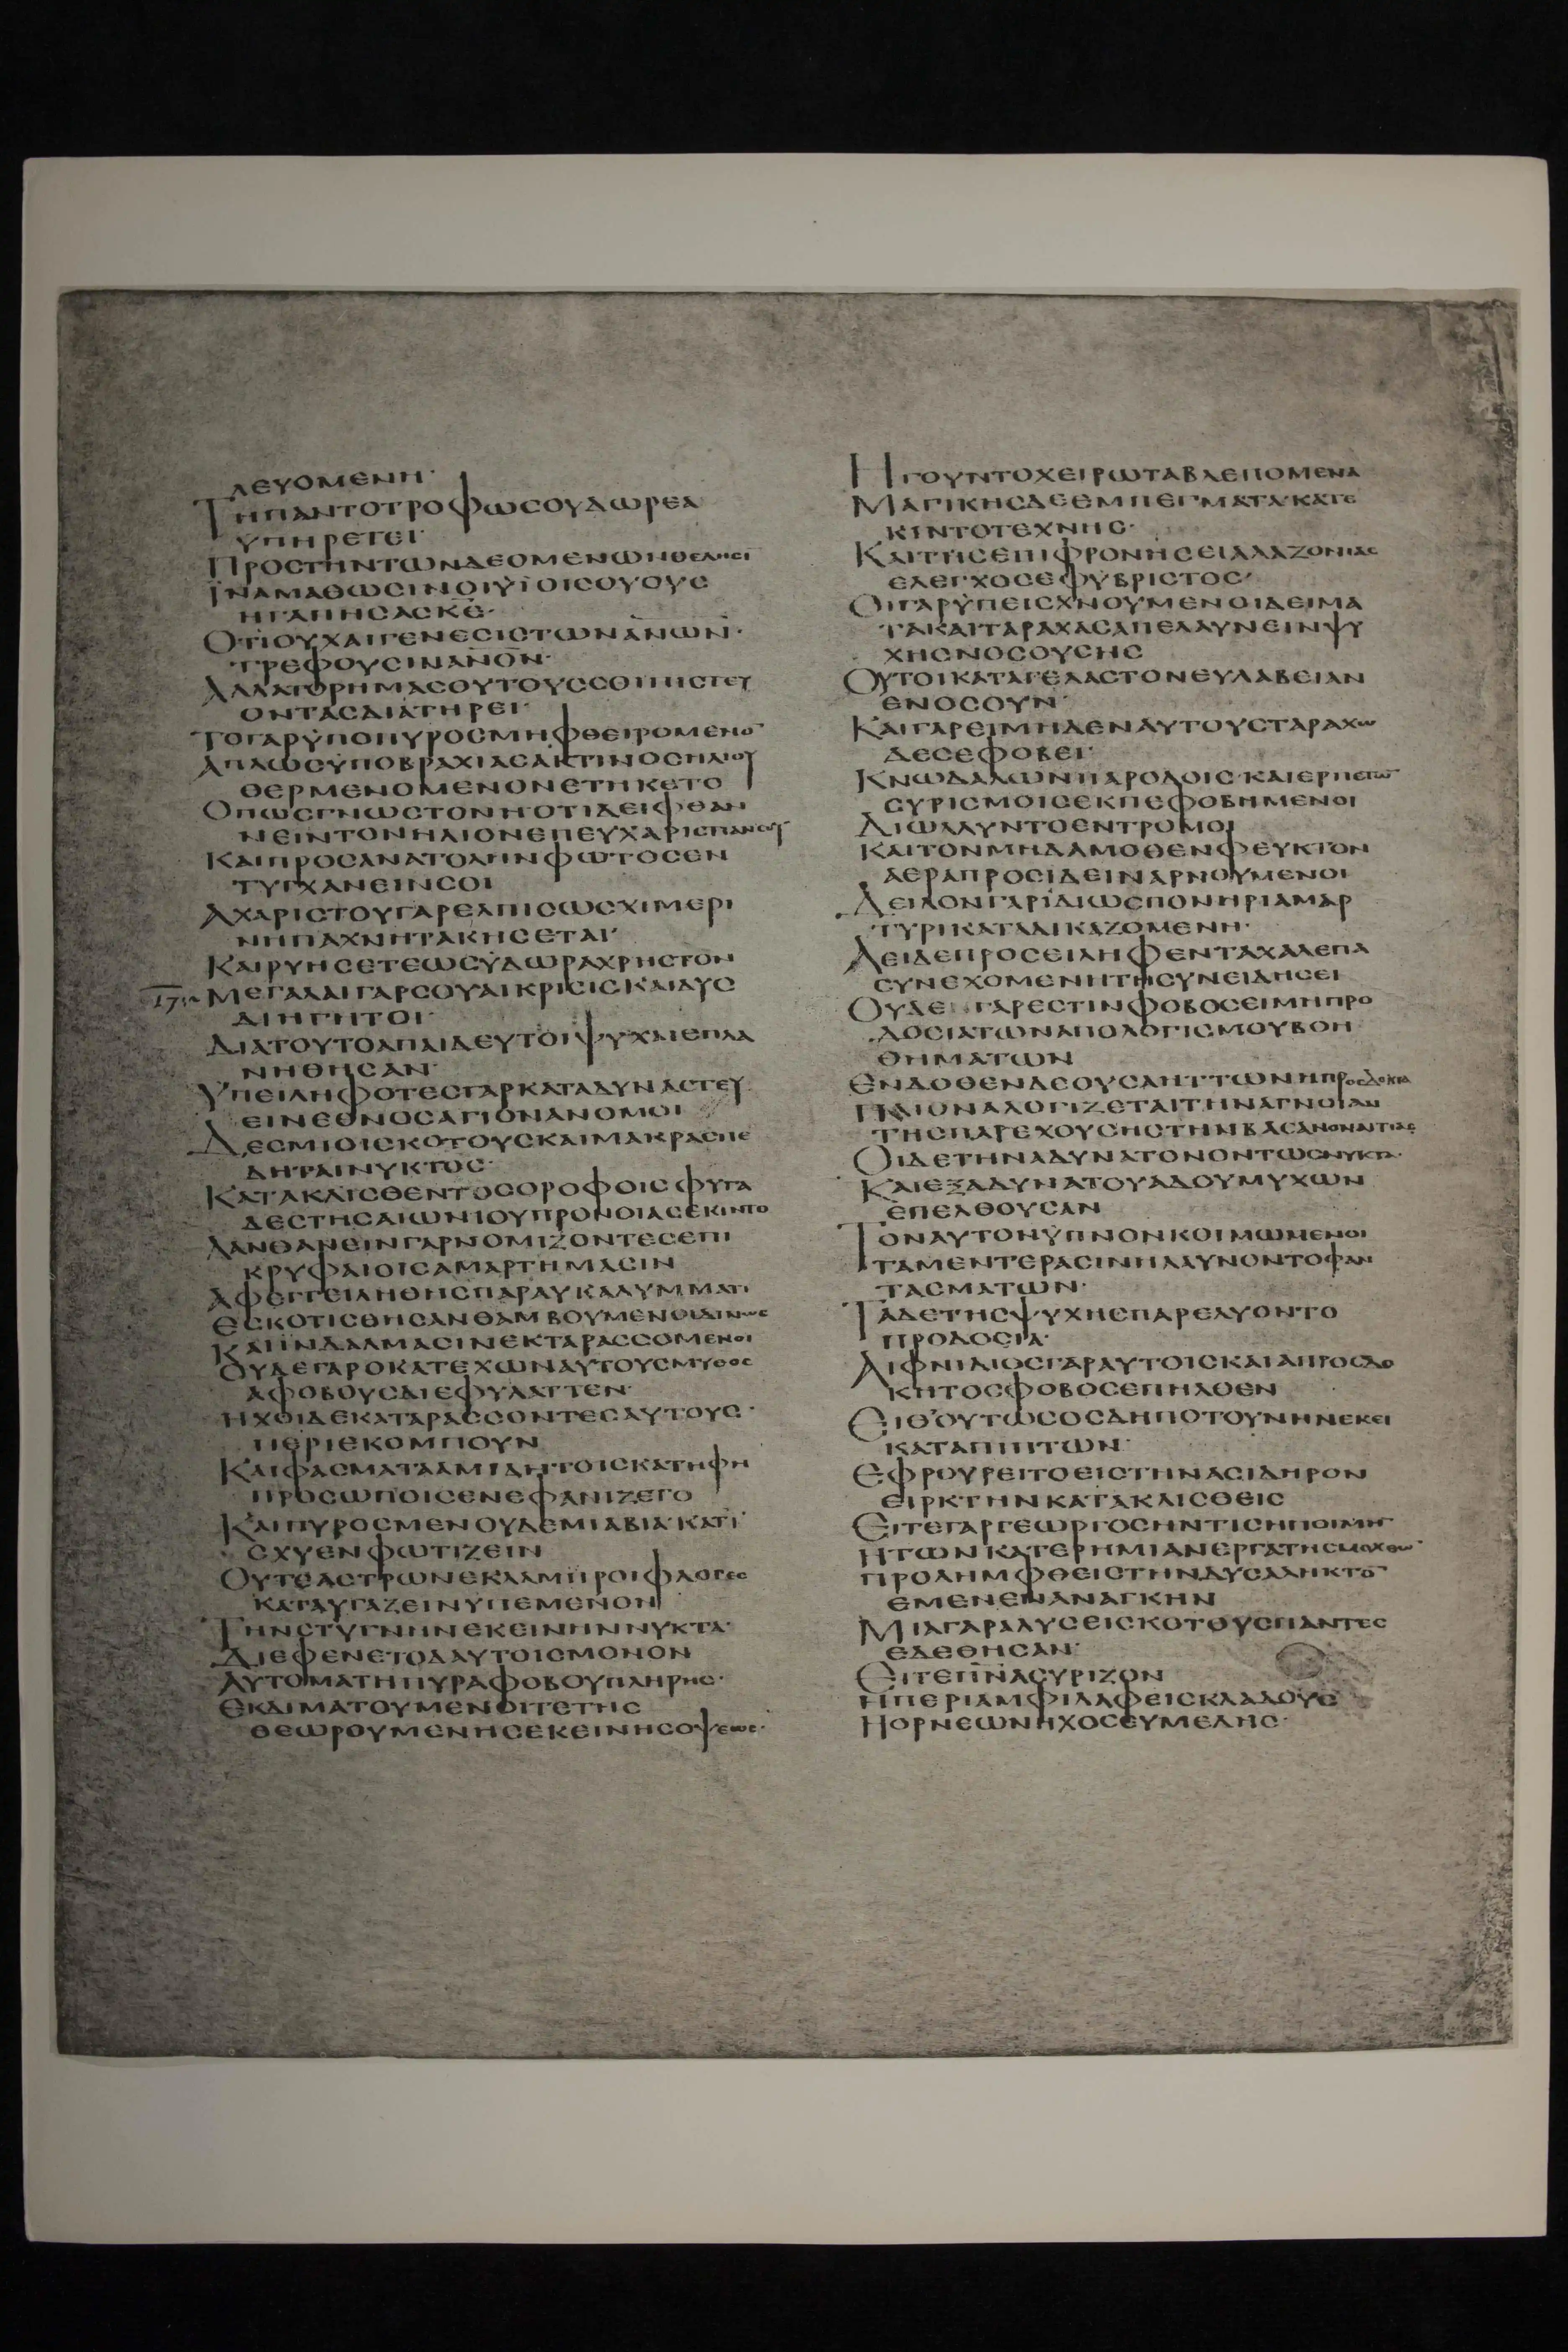 ΛΕΥΟΜΕΝΗ·
ΤΗΠΑΝΤΟΤΡΟΦΩΣΟΥΔΩΡΕΑ
ΥΠΗΡΕΤΕΙ·
ΠΡΟΣΤΗΝΤΩΝΔΕΟΜΕΝΩΝΘΕΛΗΣΙ
ΪΝΑΜΑΘΩΣΙΝΟΙΫΪΟΙΣΟΥΟΥΣ
ΗΓΑΠΗΣΑΣΚ̅Ε̅·
ΟΤΙΟΥΧΑΙΓΕΝΕΣΙΣΤΩΝΑ̅Ν̅Ω̅Ν̅·
ΤΡΕΦΟΥΣΙΝΑ̅Ν̅Ο̅Ν̅·
ΑΛΛΑΤΟΡΗΜΑΣΟΥΤΟΥΣΣΟΙΠΙΣΤΕΥ
ΟΝΤΑΣΔΙΑΤΗΡΕΙ·
ΤΟΓΑΡΫΠΟΠΥΡΟΣΜΗΦΘΕΙΡΟΜΕΝΟ̅
ΑΠΛΩΣΫΠΟΒΡΑΧΙΑΣΑΚΤΙΝΟΣΗΛΙΟΥ
ΘΕΡΜΕΝΟΜΕΝΟΝΕΤΗΚΕΤΟ
ΟΠΩΣΓΝΩΣΤΟΝΗ·ΟΤΙΔΕΙΦΘΑΝ
ΝΕΙΝΤΟΝΗΛΙΟΝΕΠΕΥΧΑΡΙΣΤΙΑΝΣΟΥ
ΚΑΙΠΡΟΣΑΝΑΤΟΛΗΝΦΩΤΟΣΕΝ
ΤΥΓΧΑΝΕΙΝΣΟΙ
ΑΧΑΡΙΣΤΟΥΓΑΡΕΛΠΙΣΩΣΧΙΜΕΡΙ
ΝΗΠΑΧΝΗΤΑΚΗΣΕΤΑΙ
ΚΑΙΡΥΗΣΕΤΕΩΣΫΔΩΡΑΧΡΗΣΤΟΝ
ΜΕΓΑΛΑΙΓΑΡΣΟΥΑΙΚΡΙΣΙΣΚΑΙΔΥΣ
ΔΙΗΓΗΤΟΙ·
ΔΙΑΤΟΥΤΟΑΠΑΙΔΕΥΤΟΙΨΥΧΑΙΕΠΛΑ
ΝΗΘΗΣΑΝ·
ΫΠΕΙΛΗΦΟΤΕΣΓΑΡΚΑΤΑΔΥΝΑΣΤΕΥ
ΕΙΝΕΘΝΟΣΑΓΙΟΝΑΝΟΜΟΙ
ΔΕΣΜΙΟΙΣΚΟΤΟΥΣΚΑΙΜΑΚΡΑΣΠΕ
ΔΗΤΑΙΝΥΚΤΟΣ·
ΚΑΤΑΚΛΙΣΘΕΝΤΟΣΟΡΟΦΟΙΣΦΥΓΑ
ΔΕΣΤΗΣΑΙΩΝΙΟΥΠΡΟΝΟΙΑΣΕΚΙΝΤΟ
ΛΑΝΘΑΝΕΙΝΓΑΡΝΟΜΙΖΟΝΤΕΣΕΠΙ
ΚΡΥΦΑΙΟΙΣΑΜΑΡΤΗΜΑΣΙΝ
ΑΦΕΓΓΕΙΛΗΘΗΣΠΑΡΑΥΚΑΛΥΜΜΑΤΙ
ΕΣΚΟΤΙΣΘΗΣΑΝΘΑΜΒΟΥΜΕΝΟΙΔΙΝΩΣ
ΚΑΙΪΝΔΑΛΜΑΣΙΝΕΚΤΑΡΑΣΣΟΜΕΝΟΙ
ΟΥΔΕΓΑΡΟΚΑΤΕΧΩΝΑΥΤΟΥΣΜΥΘΟΣ
ΑΦΟΒΟΥΣΔΙΕΦΥΛΑΤΤΕΝ·
ΗΧΟΙΔΕΚΑΤΑΡΑΣΣΟΝΤΕΣΑΥΤΟΥΣ·
ΠΕΡΙΕΚΟΜΠΟΥΝ
ΚΑΙΦΑΣΜΑΤΑΑΜΙΔΗΤΟΙΣΚΑΤΗΦΗ
ΠΡΟΣΩΠΟΙΣΕΝΕΦΑΝΙΖΕΤΟ
ΚΑΙΠΥΡΟΣΜΕΝΟΥΔΕΜΙΑΒΙΑ·ΚΑΤΙ
ΣΧΥΕΝΦΩΤΙΖΕΙΝ
ΟΥΤΕΑΣΤΡΩΝΕΚΛΑΜΠΡΟΙΦΛΟΓΕΣ
ΚΑΤΑΥΓΑΖΕΙΝΥΠΕΜΕΝΟΝ
ΤΗΝΣΤΥΓΝΗΝΕΚΕΙΝΗΝΝΥΚΤΑ·
ΔΙΕΦΕΝΕΤΟΔΑΥΤΟΙΣΜΟΝΟΝ
ΑΥΤΟΜΑΤΗΠΥΡΑΦΟΒΟΥΠΛΗΡΗΣ·
ΕΚΔΙΜΑΤΟΥΜΕΝΟΙΤΕΤΗΣ
ΘΕΩΡΟΥΜΕΝΗΣΕΚΕΙΝΗΣΟΨΕΩΣ·
ΗΓΟΥΝΤΟΧΕΙΡΩΤΑΒΛΕΠΟΜΕΝΑ
ΜΑΓΙΚΗΣΔΕΕΜΠΕΓΜΑΤΑ·ΚΑΤΕ
ΚΙΝΤΟΤΕΧΝΗΣ·
ΚΑΙΤΗΣΕΠΙΦΡΟΝΗΣΕΙΑΛΑΖΟΝΙΑΣ
ΕΛΕΓΧΟΣΕΦΥΒΡΙΣΤΟΣ·
ΟΙΓΑΡΫΠΕΙΣΧΝΟΥΜΕΝΟΙΔΕΙΜΑ
ΤΑΚΑΙΤΑΡΑΧΑΣΑΠΕΛΑΥΝΕΙΝΨΥ
ΧΗΣΝΟΣΟΥΣΗΣ
ΟΥΤΟΙΚΑΤΑΓΕΛΑΣΤΟΝΕΥΛΑΒΕΙΑΝ
ΕΝΟΣΟΥΝ·
ΚΑΙΓΑΡΕΙΜΗΔΕΝΑΥΤΟΥΣΤΑΡΑΧΩ
ΔΕΣΕΦΟΒΕΙ·
ΚΝΩΔΑΛΩΝΠΑΡΟΔΟΙΣ·ΚΑΙΕΡΠΕΤΩ̅
ΣΥΡΙΣΜΟΙΣΕΚΠΕΦΟΒΗΜΕΝΟΙ
ΔΙΩΛΛΥΝΤΟΕΝΤΡΟΜΟΙ
ΚΑΙΤΟΝΜΗΔΑΜΟΘΕΝΦΕΥΚΤΟΝ
ΑΕΡΑΠΡΟΣΪΔΕΙΝΑΡΝΟΥΜΕΝΟΙ
ΔΕΙΛΟΝΓΑΡΪΔΙΩΣΠΟΝΗΡΙΑΜΑΡ
ΤΥΡΙΚΑΤΑΔΙΚΑΖΟΜΕΝΗ·
ΑΕΙΔΕΠΡΟΣΕΙΛΗΦΕΝΤΑΧΑΛΕΠΑ
ΣΥΝΕΧΟΜΕΝΗΤΗΣΥΝΕΙΔΗΣΕΙ
ΟΥΔΕΓΑΡΕΣΤΙΝΦΟΒΟΣΕΙΜΗΠΡΟ
ΔΟΣΙΑΤΩΝΑΠΟΛΟΓΙΣΜΟΥΒΟΗ
ΘΗΜΑΤΩΝ
ΕΝΔΟΘΕΝΔΕΟΥΣΑΗΤΤΩΝΗΠΡΟΣΔΟΚΙΑ
ΠΛΙΟΝΑΛΟΓΙΖΕΤΑΙΤΗΝΑΓΝΟΙΑΝ
ΤΗΣΠΑΡΕΧΟΥΣΗΣΤΗΝΒΑΣΑΝΟΝΑΙΤΙΑΣ
ΟΙΔΕΤΗΝΑΔΥΝΑΤΟΝΟΝΤΩΣΝΥΚΤΑ·
ΚΑΙΕΞΑΔΥΝΑΤΟΥΑΔΟΥΜΥΧΩΝ
ΕΠΕΛΘΟΥΣΑΝ
ΤΟΝΑΥΤΟΝΫΠΝΟΝΚΟΙΜΩΜΕΝΟΙ
ΤΑΜΕΝΤΕΡΑΣΙΝΗΛΑΥΝΟΝΤΟΦΑΝ
ΤΑΣΜΑΤΩΝ·
ΤΑΔΕΤΗΣΨΥΧΗΣΠΑΡΕΛΥΟΝΤΟ
ΠΡΟΔΟΣΙΑ·
ΑΙΦΝΙΔΙΟΣΓΑΡΑΥΤΟΙΣΚΑΙΑΠΡΟΣΔΟ
ΚΗΤΟΣΦΟΒΟΣΕΠΗΛΘΕΝ
ΕΙΘΟΥΤΩΣΟΣΔΗΠΟΤΟΥΝΗΝΕΚΕΙ
ΚΑΤΑΠΙΠΤΩΝ·
ΕΦΡΟΥΡΕΙΤΟΕΙΣΤΗΝΑΣΙΔΗΡΟΝ
ΕΙΡΚΤΗΝΚΑΤΑΚΛΙΣΘΕΙΣ
ΕΙΤΕΓΑΡΓΕΩΡΓΟΣΗΝΤΙΣΗΠΟΙΜΗ̅
ΗΤΩΝΚΑΤΕΡΗΜΙΑΝΕΡΓΑΤΗΣΜΟΧΘΩ̅
ΠΡΟΛΗΜΦΘΕΙΣΤΗΝΔΥΣΑΛΗΚΤΟ̅
ΕΜΕΝΕΝΑΝΑΓΚΗΝ
ΜΙΑΓΑΡΑΛΥΣΕΙΣΚΟΤΟΥΣΠΑΝΤΕΣ
ΕΔΕΘΗΣΑΝ·
ΕΙΤΕΠ̅Ν̅ΑΣΥΡΙΖΟΝ
ΗΠΕΡΙΑΜΦΙΛΑΦΕΙΣΚΛΑΔΟΥΣ
ΗΟΡΝΕΩΝΗΧΟΣΕΥΜΕΛΗΣ·